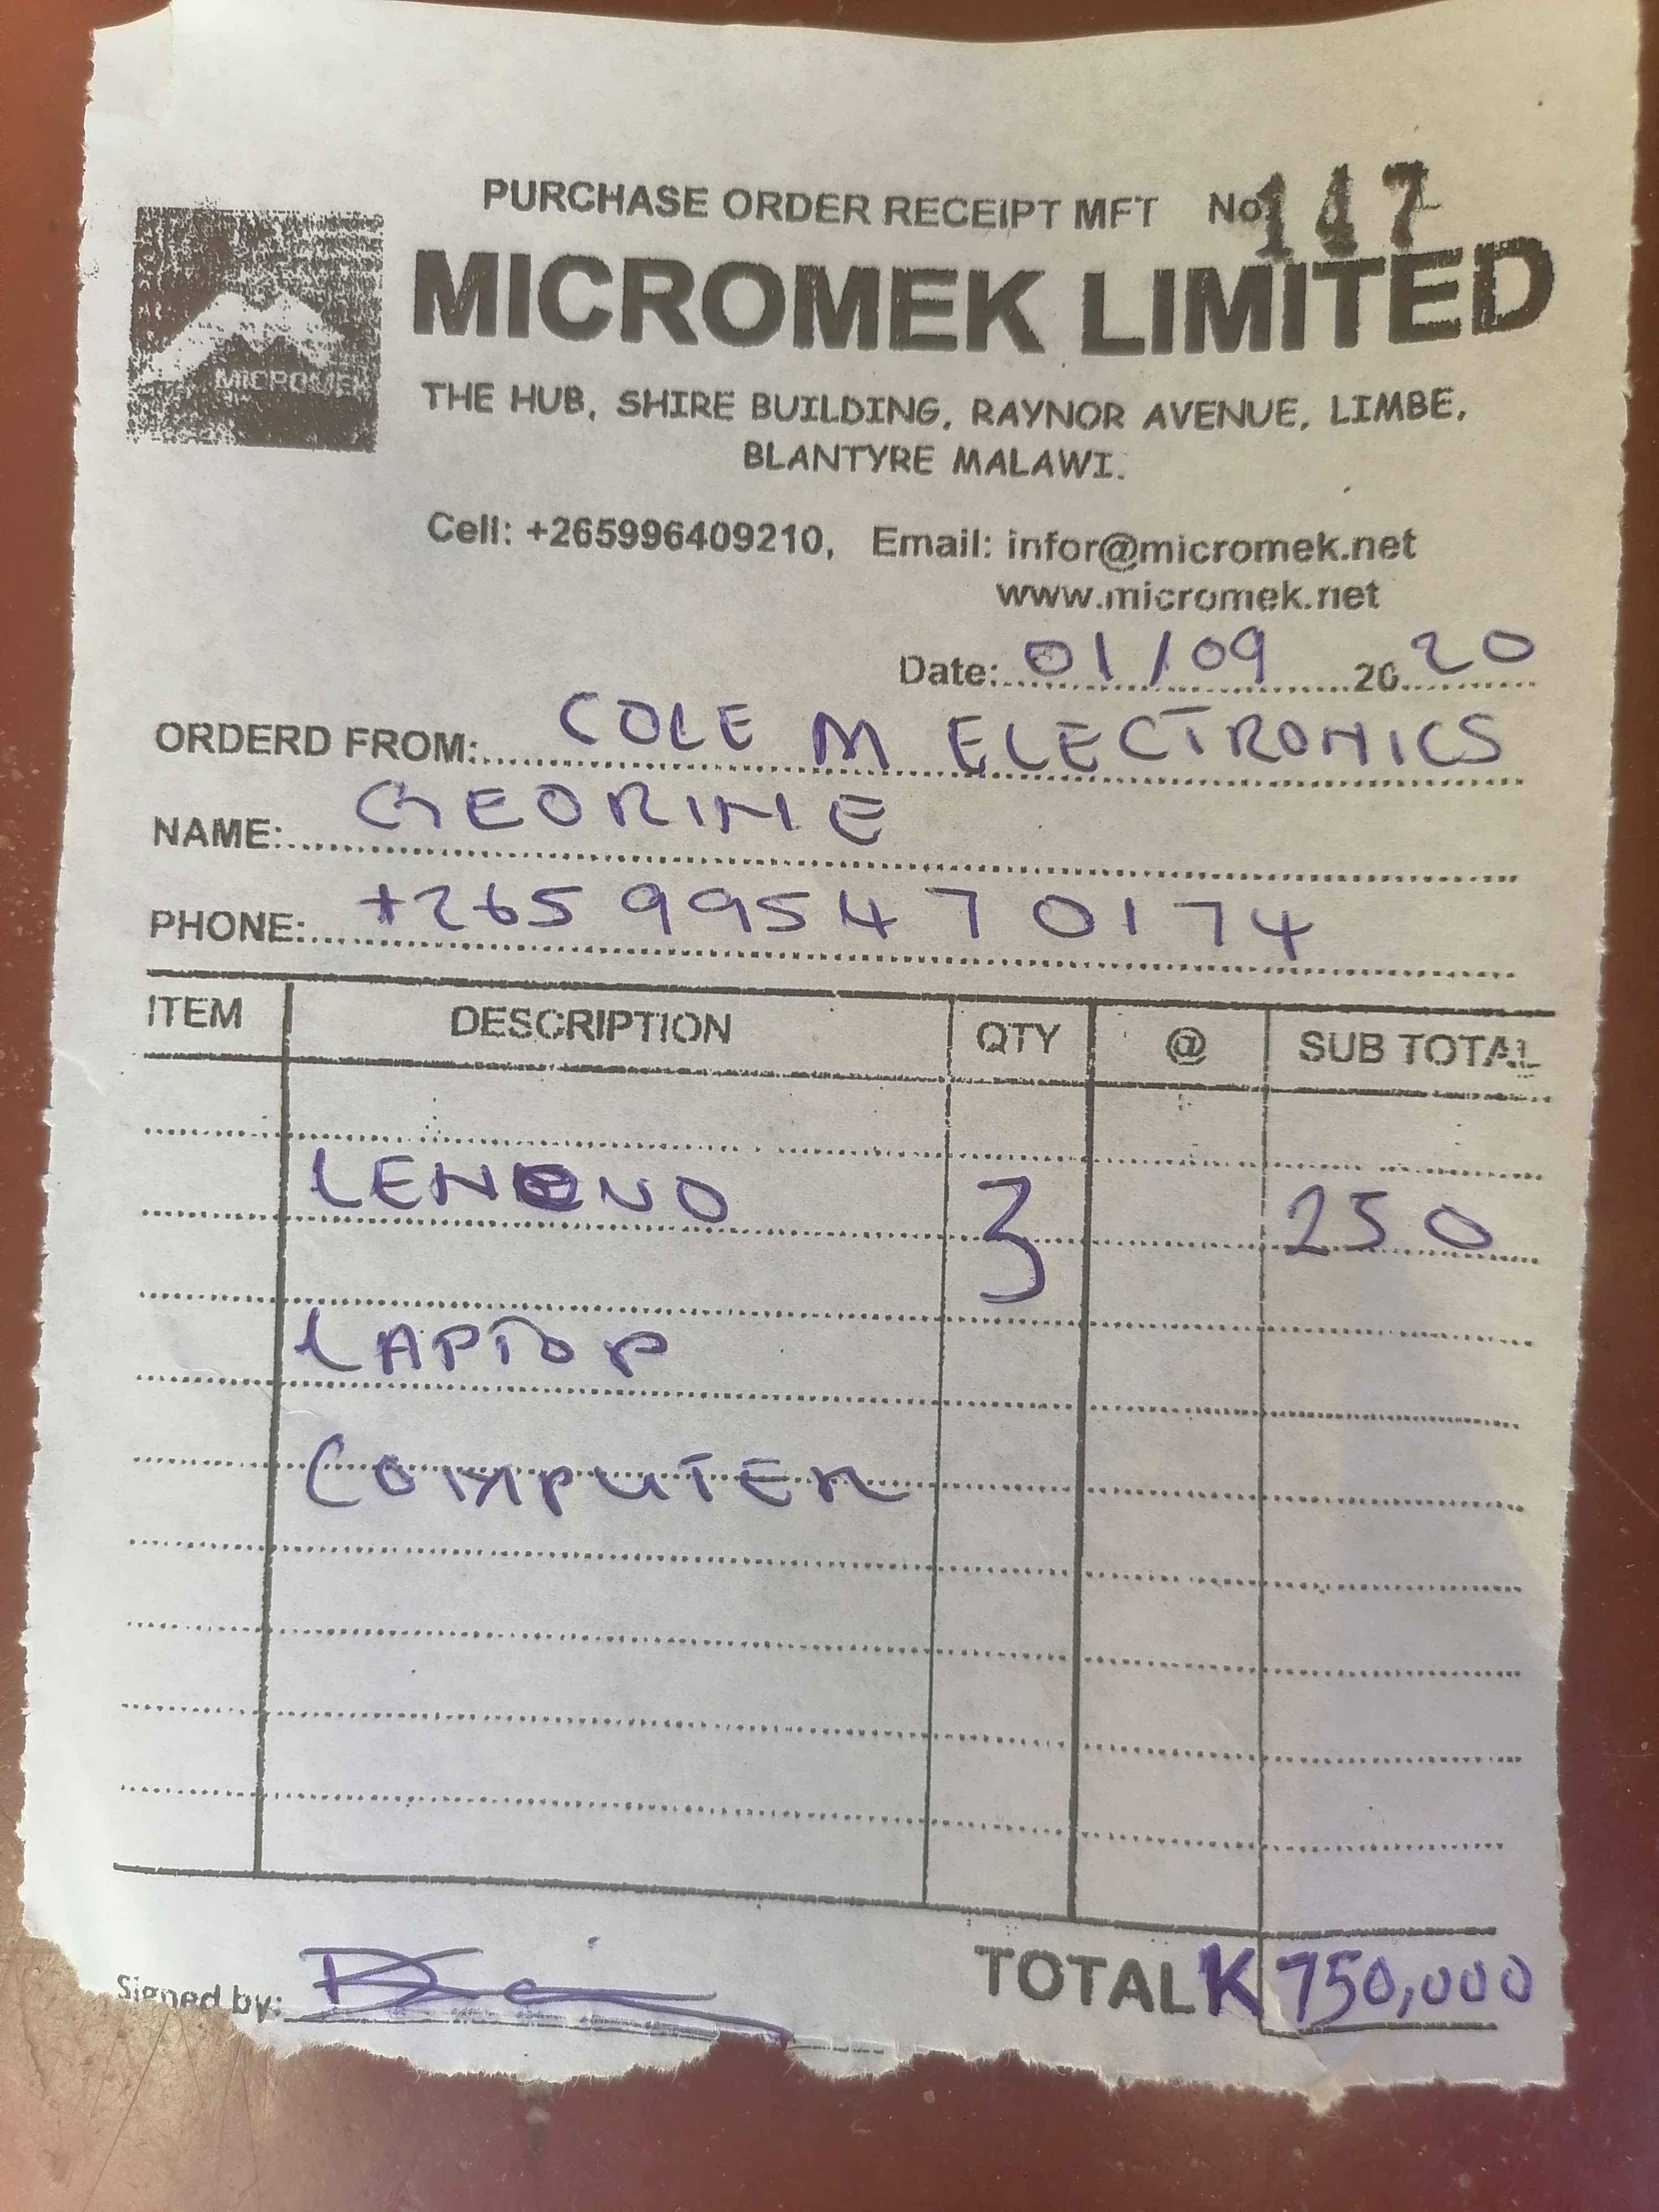 PURCHASE ORDER RECEIPT MFT No 147
MICROMEK
MICROMEK LIMITED
THE HUB, SHIRE BUILDING, RAYNOR AVENUE, LIMBE,
BLANTYRE MALAWI.
Cell: +265996409210, Email: infor@micromek.net
www.micromek.net
Date: 01/09 2020
ORDERD FROM: COLE M ELECTRONICS
NAME: GEORINE
PHONE: +265 995470174
ITEM DESCRIPTION QTY @ SUB TOTAL
LENOVO 3 250
LAPTOP
COMPUTER
Signed by: TOTAL K 750,000